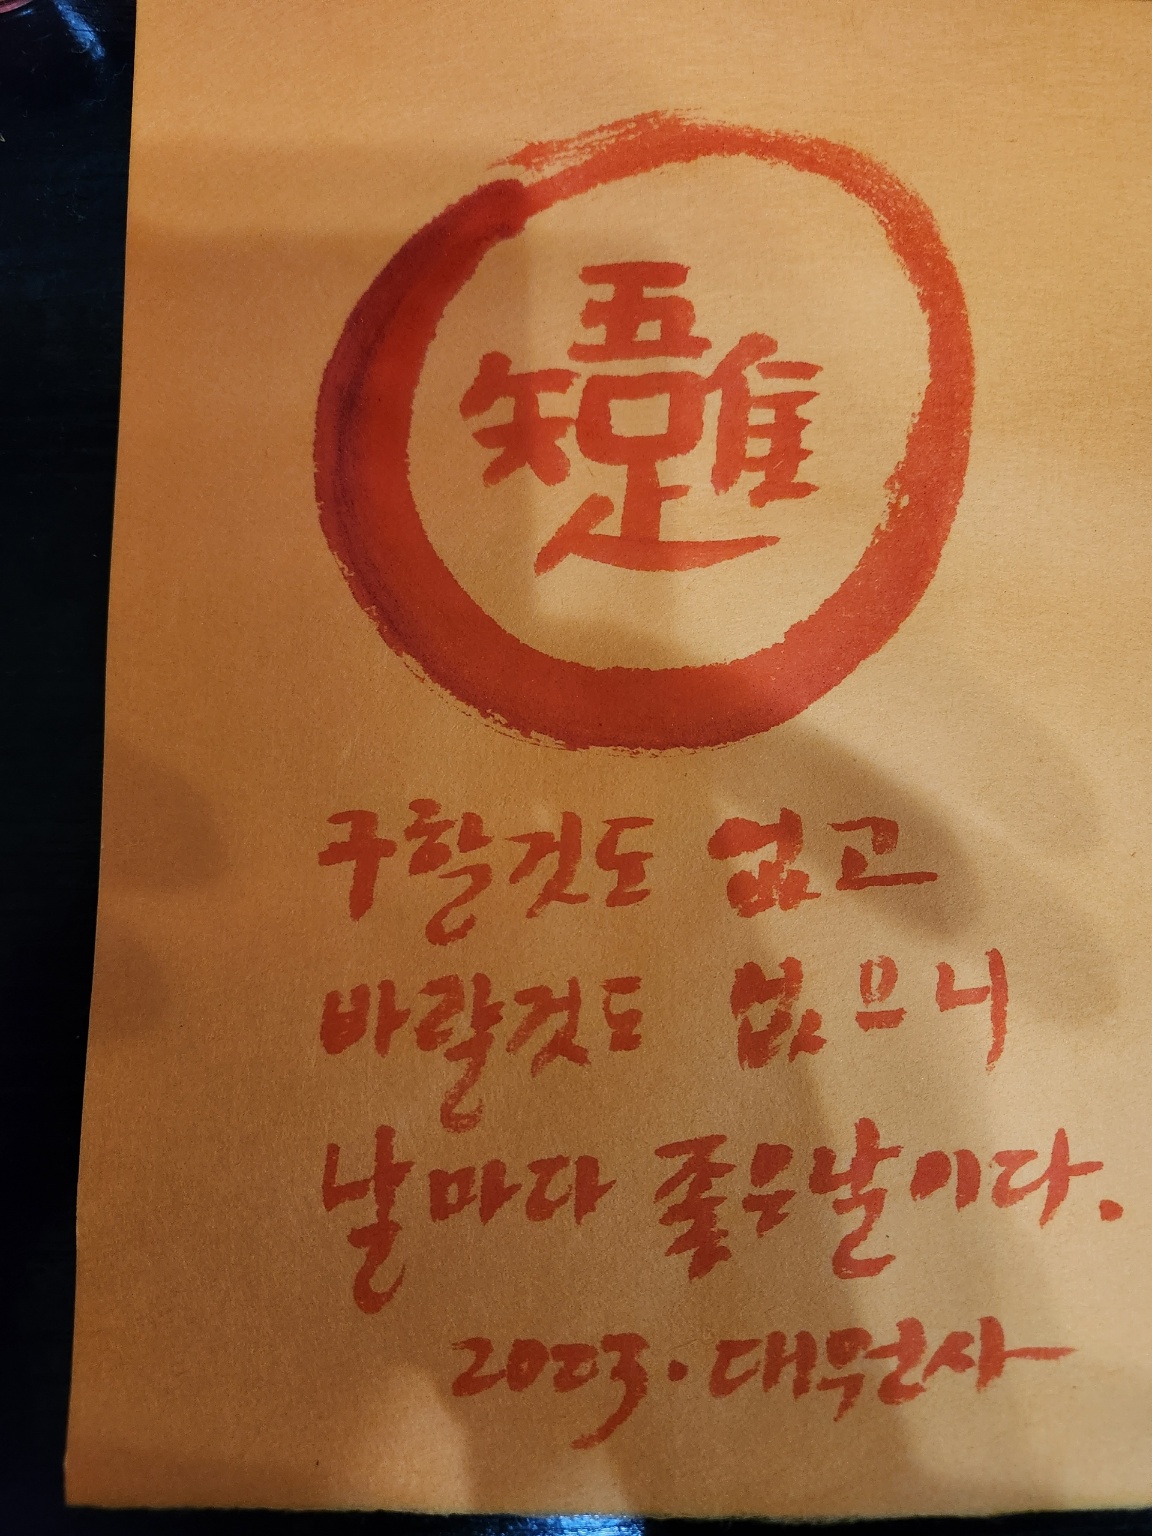 吾唯知足
구할것도 없고
바랄것도 없으니
날마다 좋은날이다.
2023·대원사